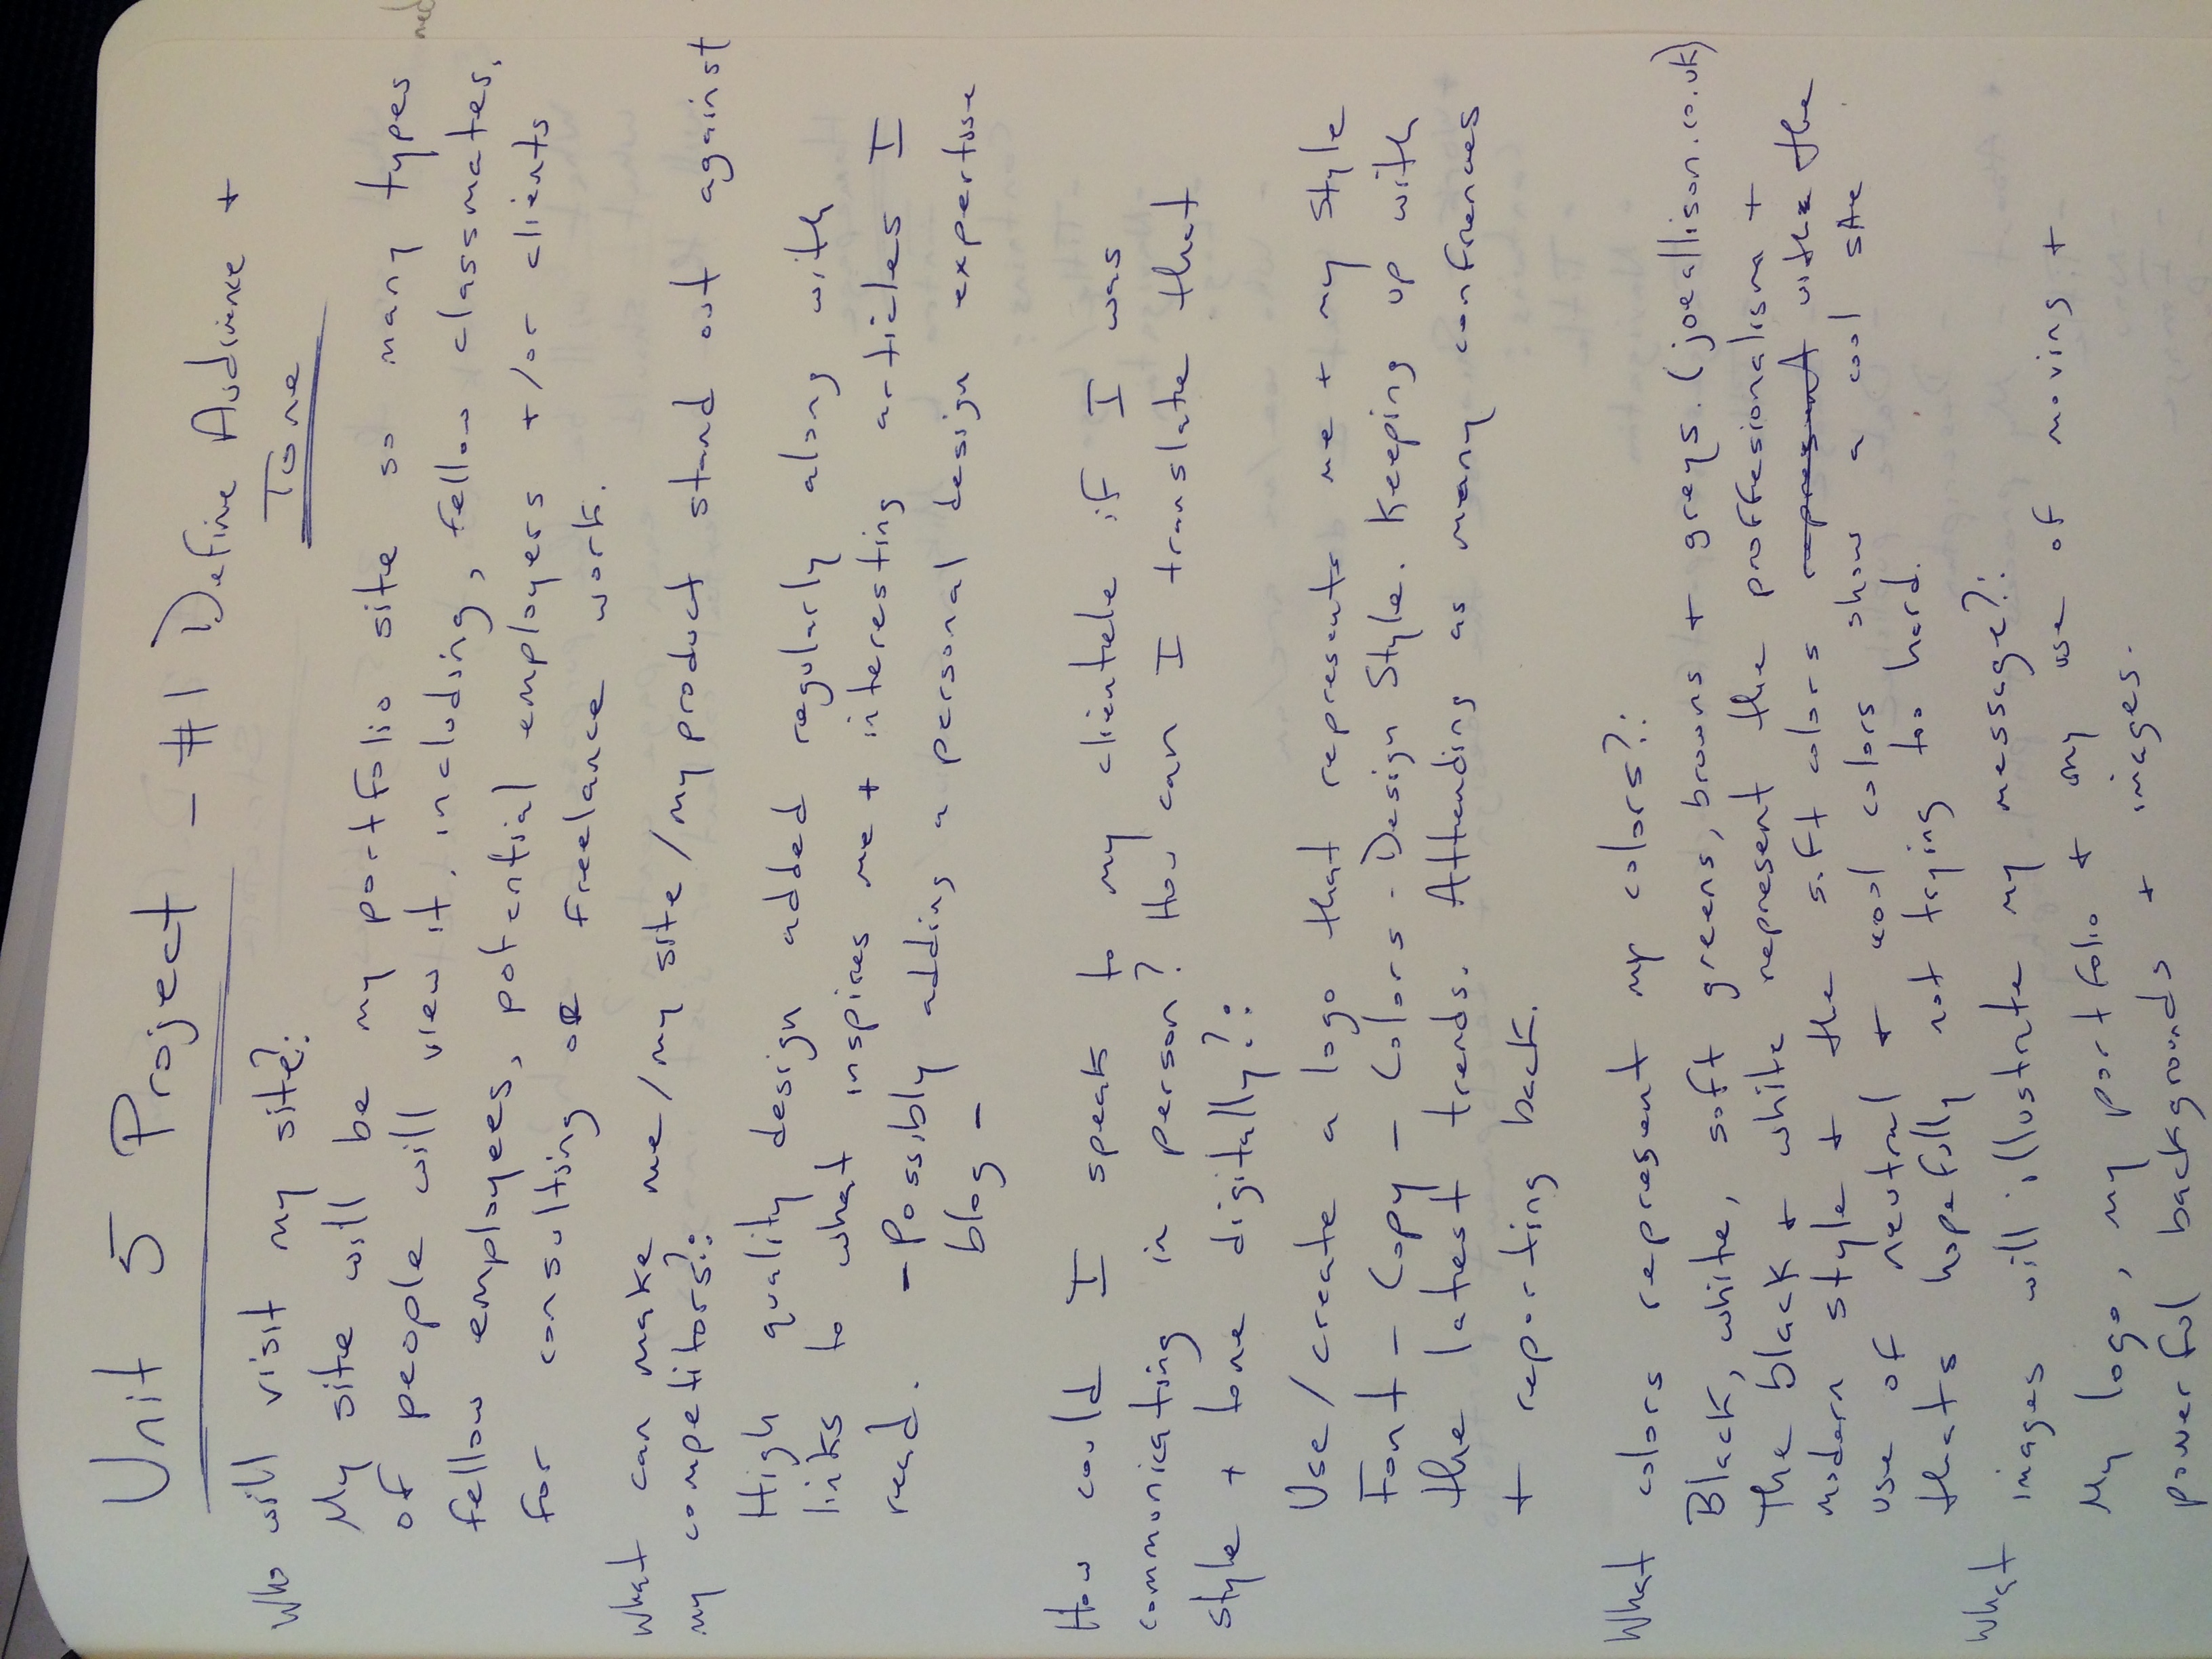 Unit 5 Project - #1 Define Audience +
Tone
Who will visit my site?:
My site will be my portfolio site so many types
of people will view it, including, fellow classmates,
fellow employees, potential employers +/or clients
for consulting or freelance work.
What can make me/my site/my product stand out against
my competitors?:
High quality design added regularly along with
links to what inspires me + interesting articles I
read. - Possibly adding a personal design expertise
blog -
How could I speak to my clientele if I was
communicating in person? How can I translate that
style + tone digitally?:
Use/create a logo that represents me + my style
Font - Copy - Colors - Design Style. Keeping up with
the latest trends. Attending as many confrences
+ reporting back.
What colors represent my colors?:
Black, white, soft greens, browns + greys. (joeallison.co.uk)
The black + white represent the proffesionalism +
modern style + the soft colors represent with the
use of neutral + cool colors show a cool site
thats hopefully not trying too hard.
What images will illustrate my message?:
My logo, my portfolio + my use of moving +
powerful backgrounds + images.